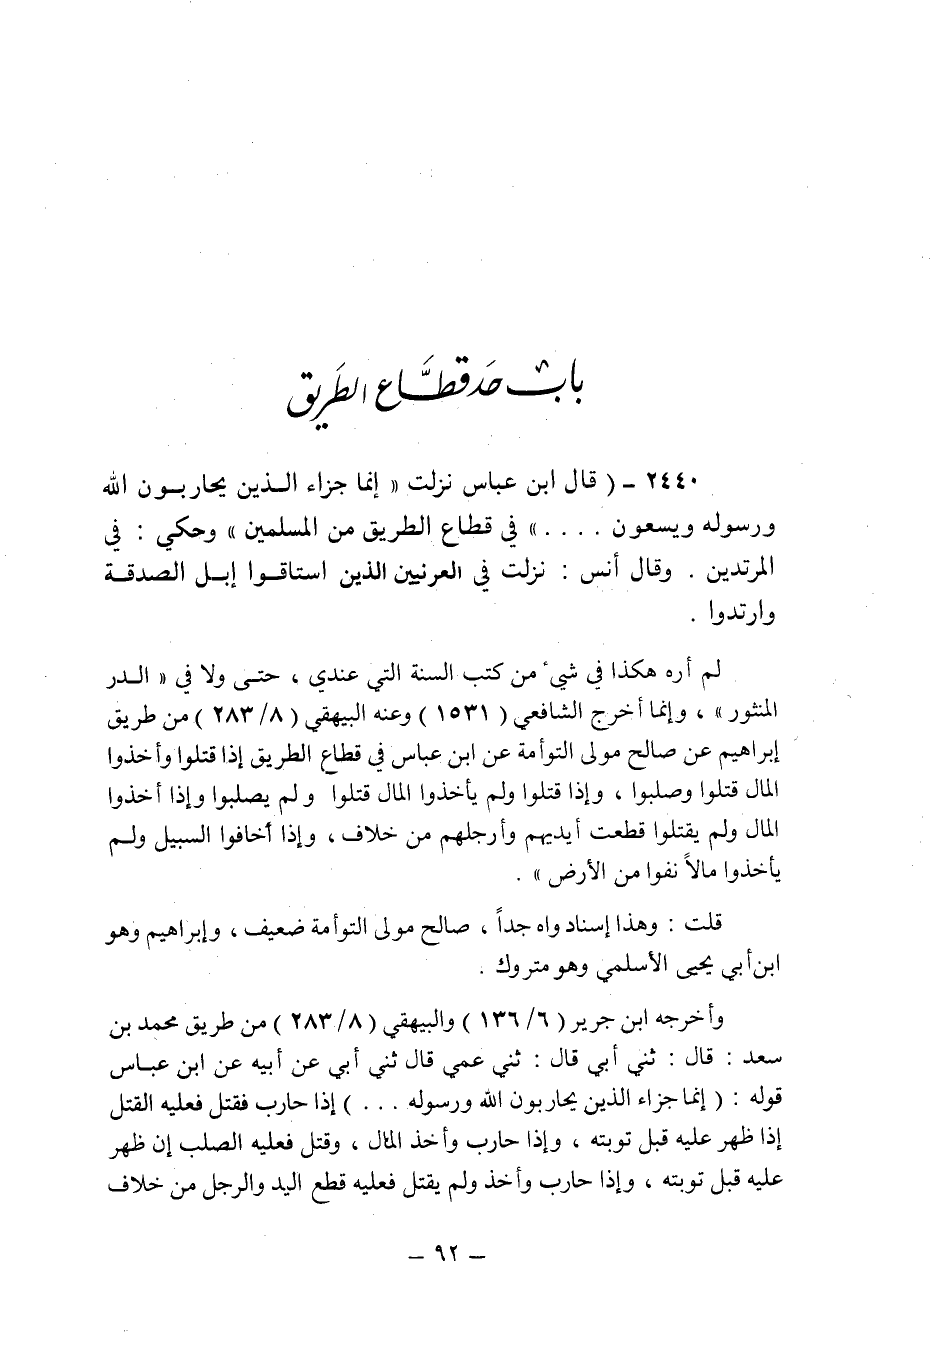 باب حَد قطَّاع الطَريق
٢٤٤٠ - ( قال ابن عباس نزلت « إنما جزاء الـذين يحاربـون الله
ورسوله ويسعون . . . . » في قطاع الطريق من المسلمين » وحكي : في
المرتدين . وقال أنس : نزلت في العرنيين الذين استاقـوا إبـل الصدقـة
وارتدوا .
لم أره هكذا في شيءٌ من كتب السنة التي عندي ، حتـى ولا في « الـدر
المنثور » ، وإنما أخرج الشافعي ( ١٥٣١ ) وعنه البيهقي ( ٨/ ٢٨٣ ) من طريق
إبراهيم عن صالح مولى التوأمة عن ابن عباس في قطاع الطريق إذا قتلوا وأخذوا
المال قتلوا وصلبوا ، وإذا قتلوا ولم يأخذوا المال قتلوا ولم يصلبوا وإذا أخذوا
المال ولم يقتلوا قطعت أيديهم وأرجلهم من خلاف ، وإذا أخافوا السبيل ولـم
يأخذوا مالاً نفوا من الأرض » .
قلت : وهذا إسناد واه جداً ، صالح مولى التوأمة ضعيف ، وإبراهيم وهو
ابن أبي يحيى الأسلمي وهو متروك .
وأخرجه ابن جرير ( ٦/ ١٣٦ ) والبيهقي ( ٨/ ٢٨٣ ) من طريق محمد بن
سعد : قال : ثني أبي قال : ثني عمي قال ثني أبي عن أبيه عن ابن عبـاس
قوله : ( إنما جزاء الذين يحاربون الله ورسوله . . . ) إذا حارب فقتل فعليه القتل
إذا ظهر عليه قبل توبته ، وإذا حارب وأخذ المال ، وقتل فعليه الصلب إن ظهر
عليه قبل توبته ، وإذا حارب وأخذ ولم يقتل فعليه قطع اليد والرجل من خلاف
– ٩٢ –